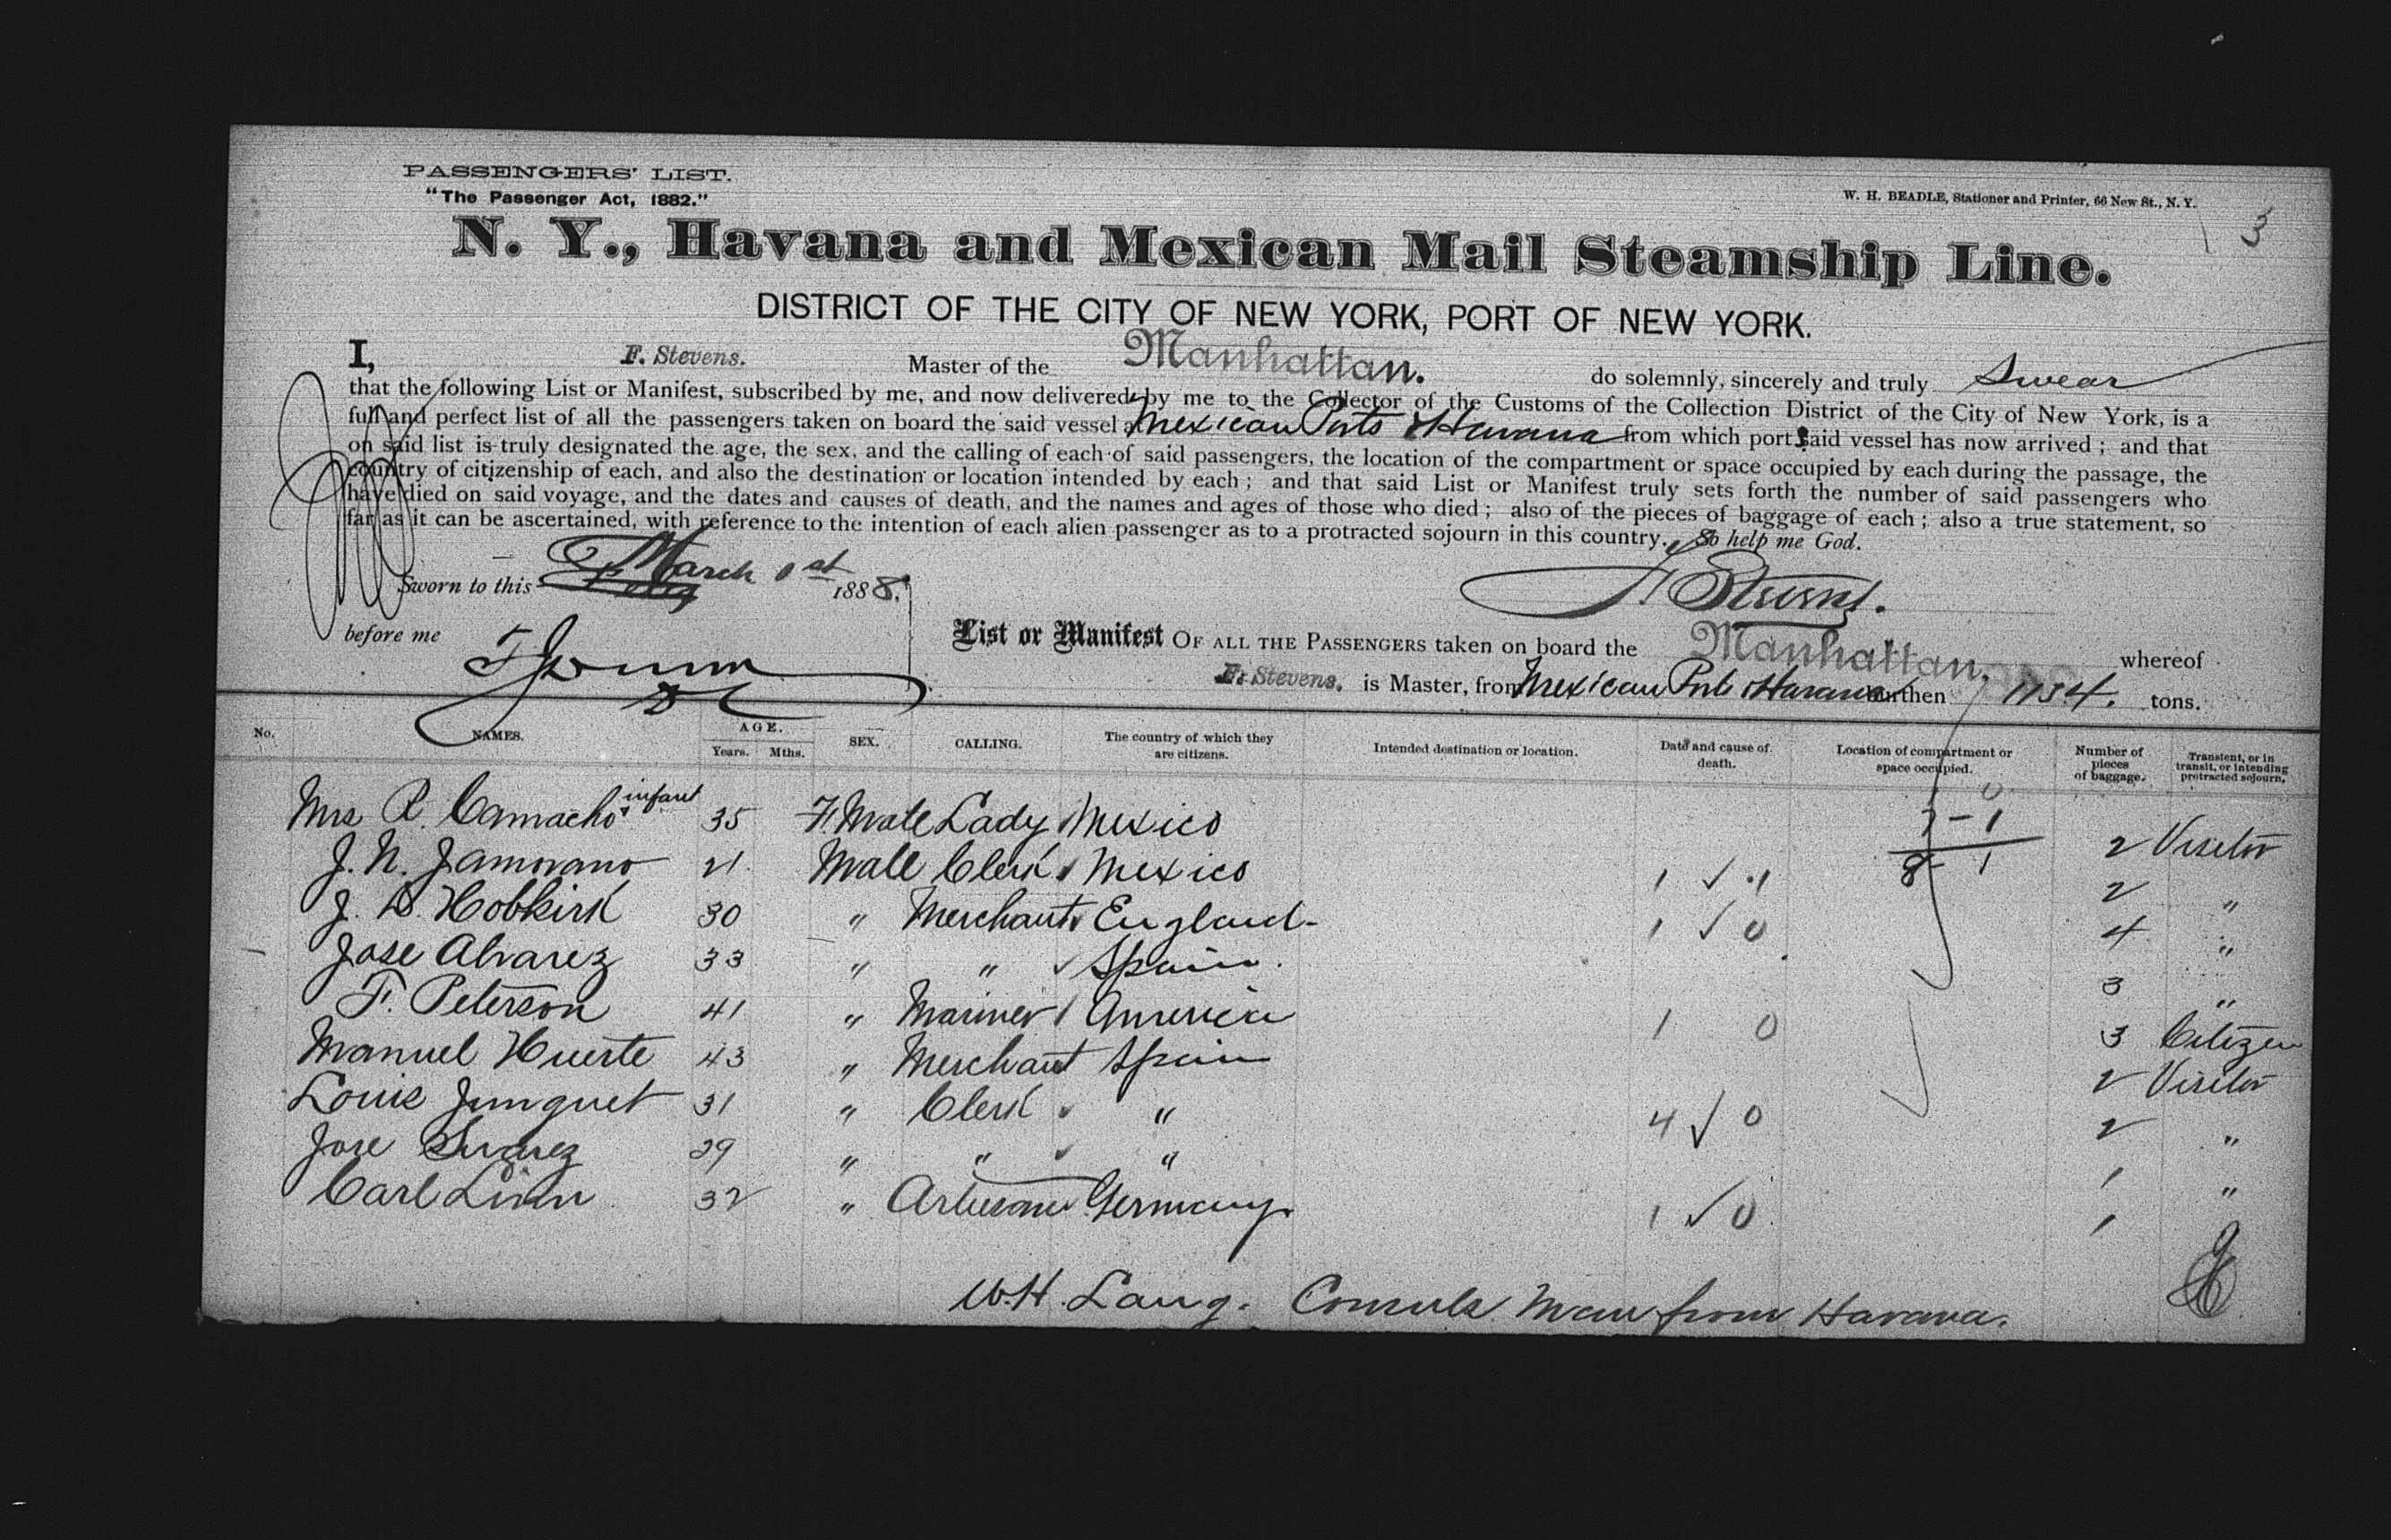 PASSENGERS' LIST.
"The Passenger Act, 1882."
W. H. BEADLE, Stationer and Printer, 66 New St., N. Y.
3
N. Y., Havana and Mexican Mail Steamship Line.
DISTRICT OF THE CITY OF NEW YORK, PORT OF NEW YORK.
I, F. Stevens. Master of the Manhattan. do solemnly, sincerely and truly Swear
that the following List or Manifest, subscribed by me, and now delivered by me to the Collector of the Customs of the Collection District of the City of New York, is a
full and perfect list of all the passengers taken on board the said vessel at Mexican Ports & Havana from which port said vessel has now arrived; and that
on said list is truly designated the age, the sex, and the calling of each of said passengers, the location of the compartment or space occupied by each during the passage, the
country of citizenship of each, and also the destination or location intended by each; and that said List or Manifest truly sets forth the number of said passengers who
have died on said voyage, and the dates and causes of death, and the names and ages of those who died; also of the pieces of baggage of each; also a true statement, so
far as it can be ascertained, with reference to the intention of each alien passenger as to a protracted sojourn in this country. So help me God.
Sworn to this March 1st 1888.
F. Stevens.
before me
List or Manifest OF ALL THE PASSENGERS taken on board the Manhattan. whereof
F. Stevens. is Master, from Mexican Ports & Havana burthen 1154. tons.
No. NAMES. AGE. Years. Mths. SEX. CALLING. The country of which they are citizens. Intended destination or location. Date and cause of death. Location of compartment or space occupied. Number of pieces of baggage. Transient, or in transit, or intending protracted sojourn.
Mrs R. Camacho & infant 35 F.Male Lady Mexico 7-1 2 Visitor
J. N. Zamorano 21 Male Clerk Mexico 1 √ 1 8 1 2 "
J. D. Hobkirk 30 " Merchant England 1 √ 0 4 "
Jose Alvarez 33 " " Spain. 3 "
F. Peterson 41 " Mariner America 1 0 3 Citizen
Manuel Huerte 43 " Merchant Spain 2 Visitor
Louis Junquet 31 " Clerk " 4 √ 0 2 "
Jose Suarez 29 " " " 1 "
Carl Linn 32 " Artisan Germany 1 √ 0 1
W.H. Lang. Consuls Man from Havana.